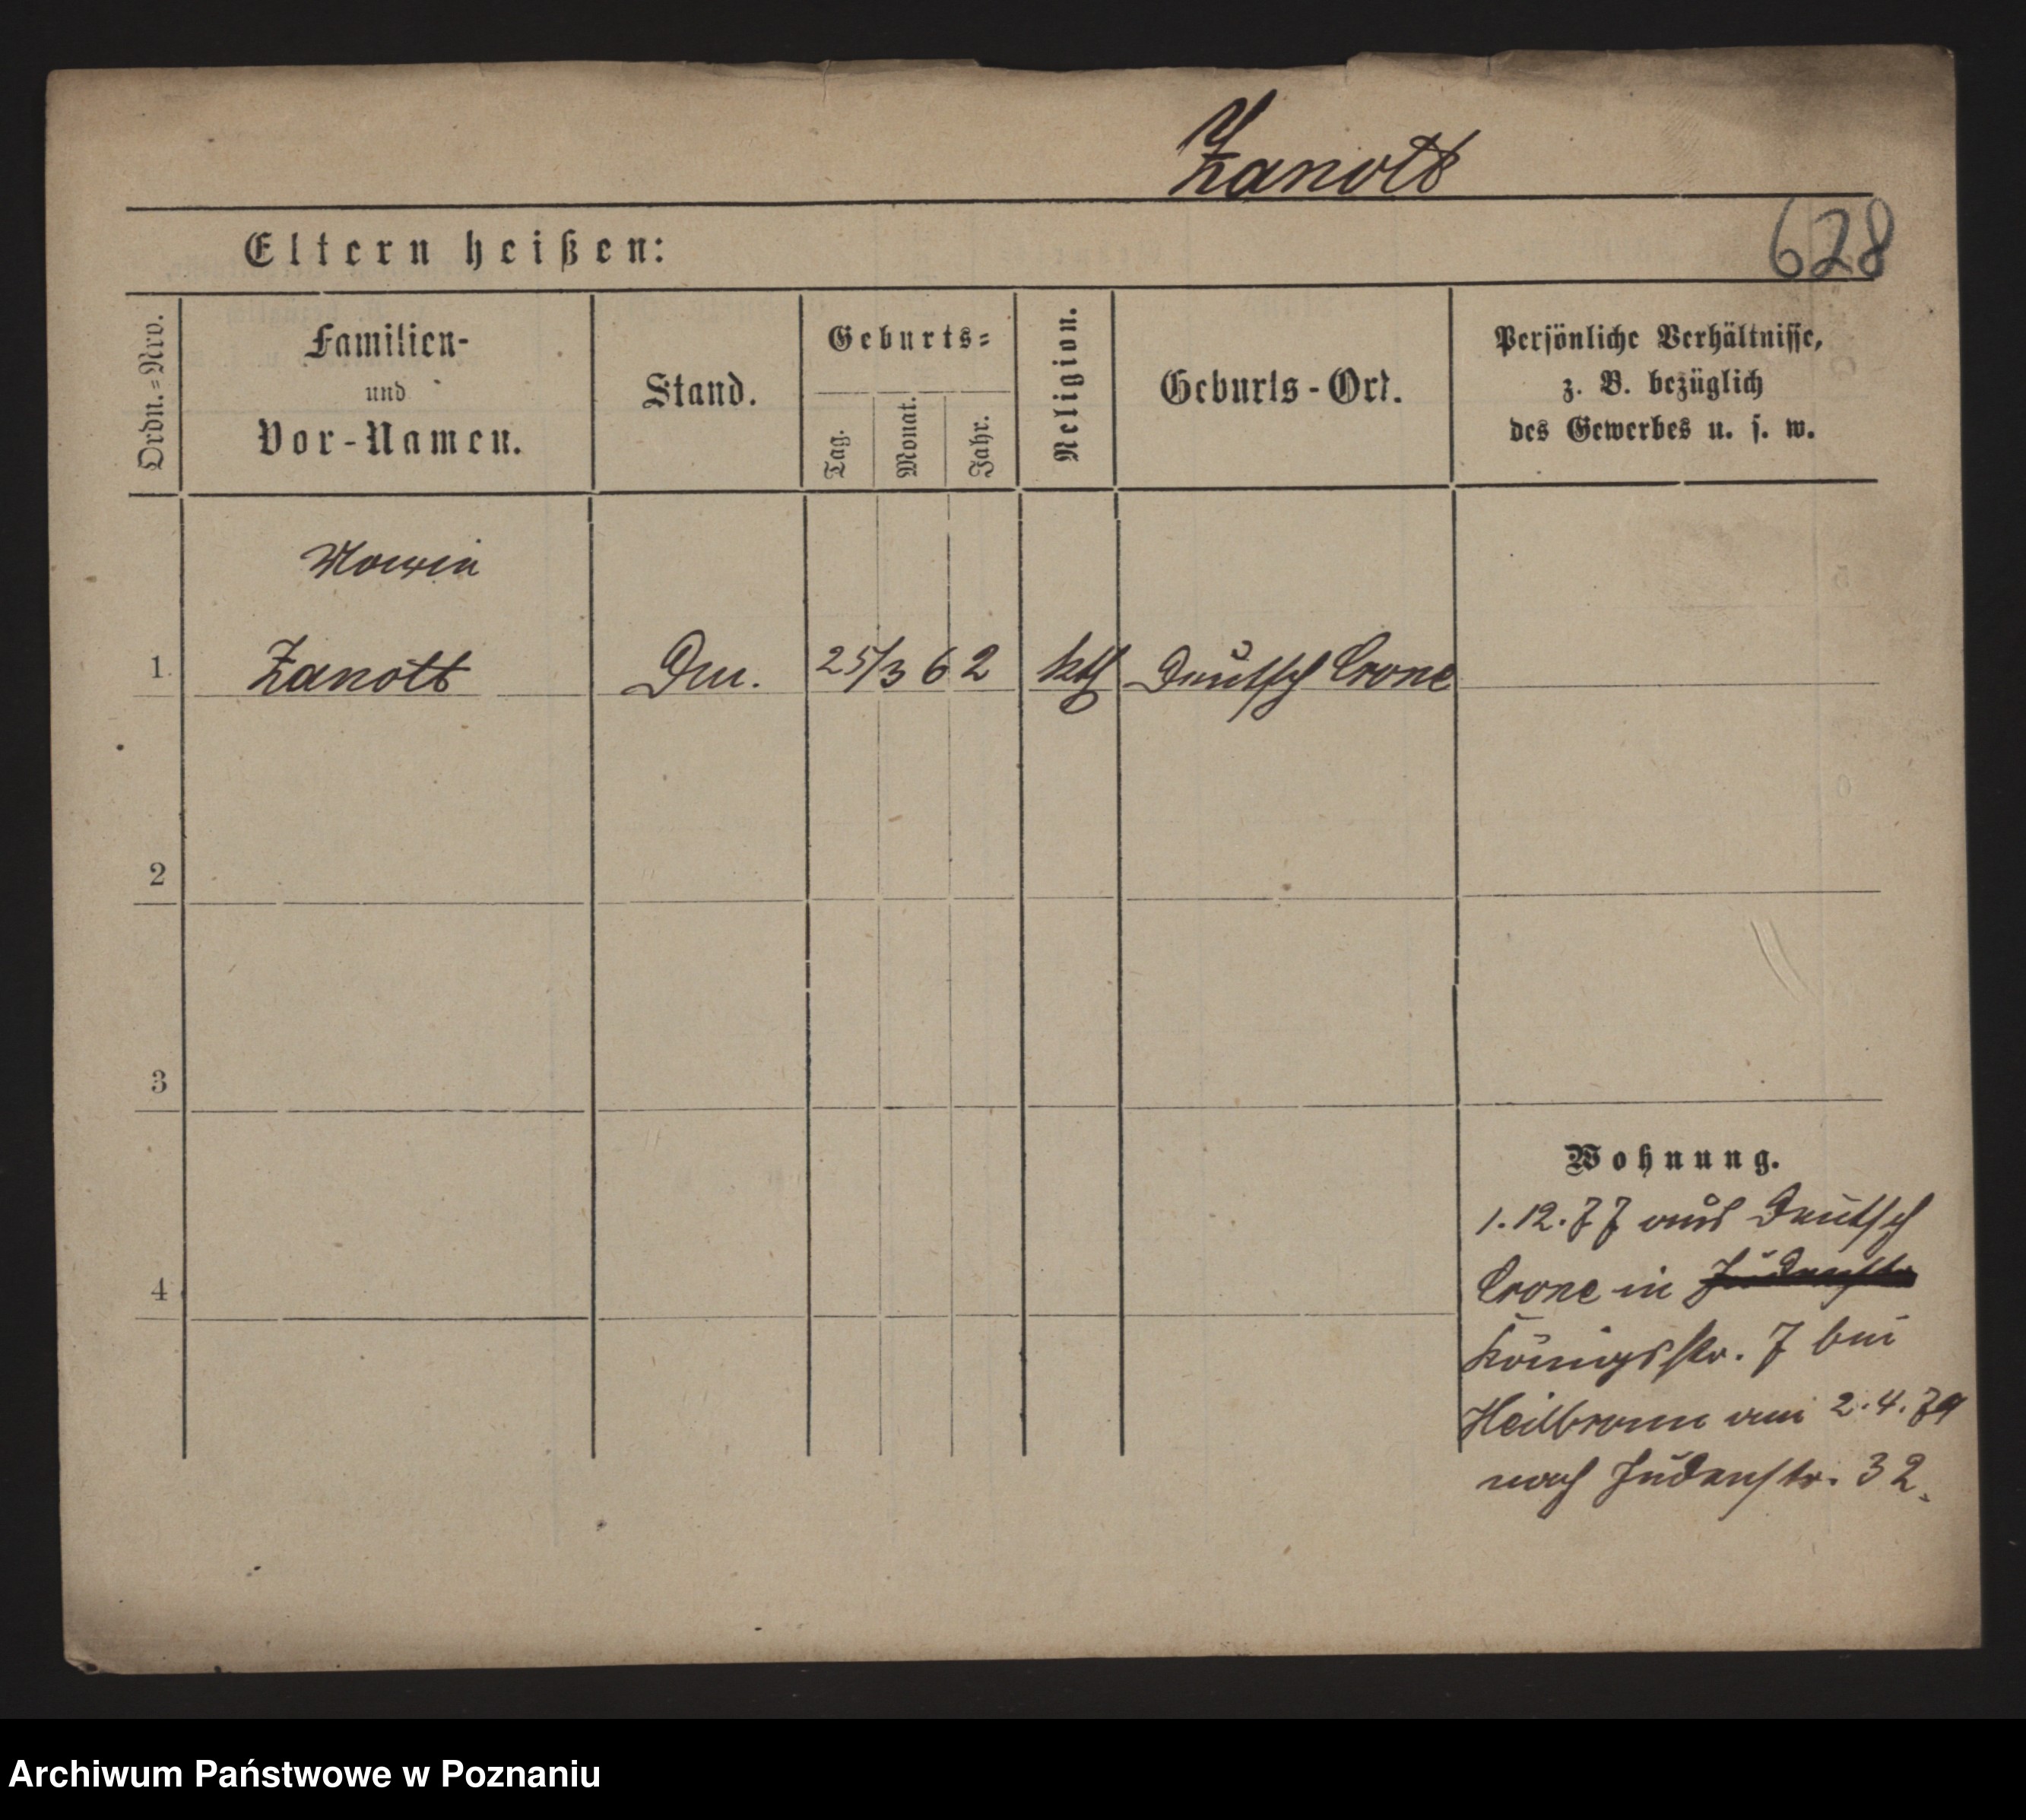 Zanott
628
Eltern heißen:
Ordn.=Nro.
Familien-
und
Vor-Namen.
Stand.
Geburts=
Tag.
Monat.
Jahr.
Religion.
Geburts-Ort.
Persönliche Verhältnisse,
z. B. bezüglich
des Gewerbes u. s. w.
Maria
1. Zanott 25/3 62 kth Deutsch Crone
2
3
4
Wohnung.
1.12.77 aus Deutsch
Crone in Judenstr
Königsstr. 7 bei
Heilbronn am 2.4.79
nach Judenstr. 32.
Archiwum Państwowe w Poznaniu